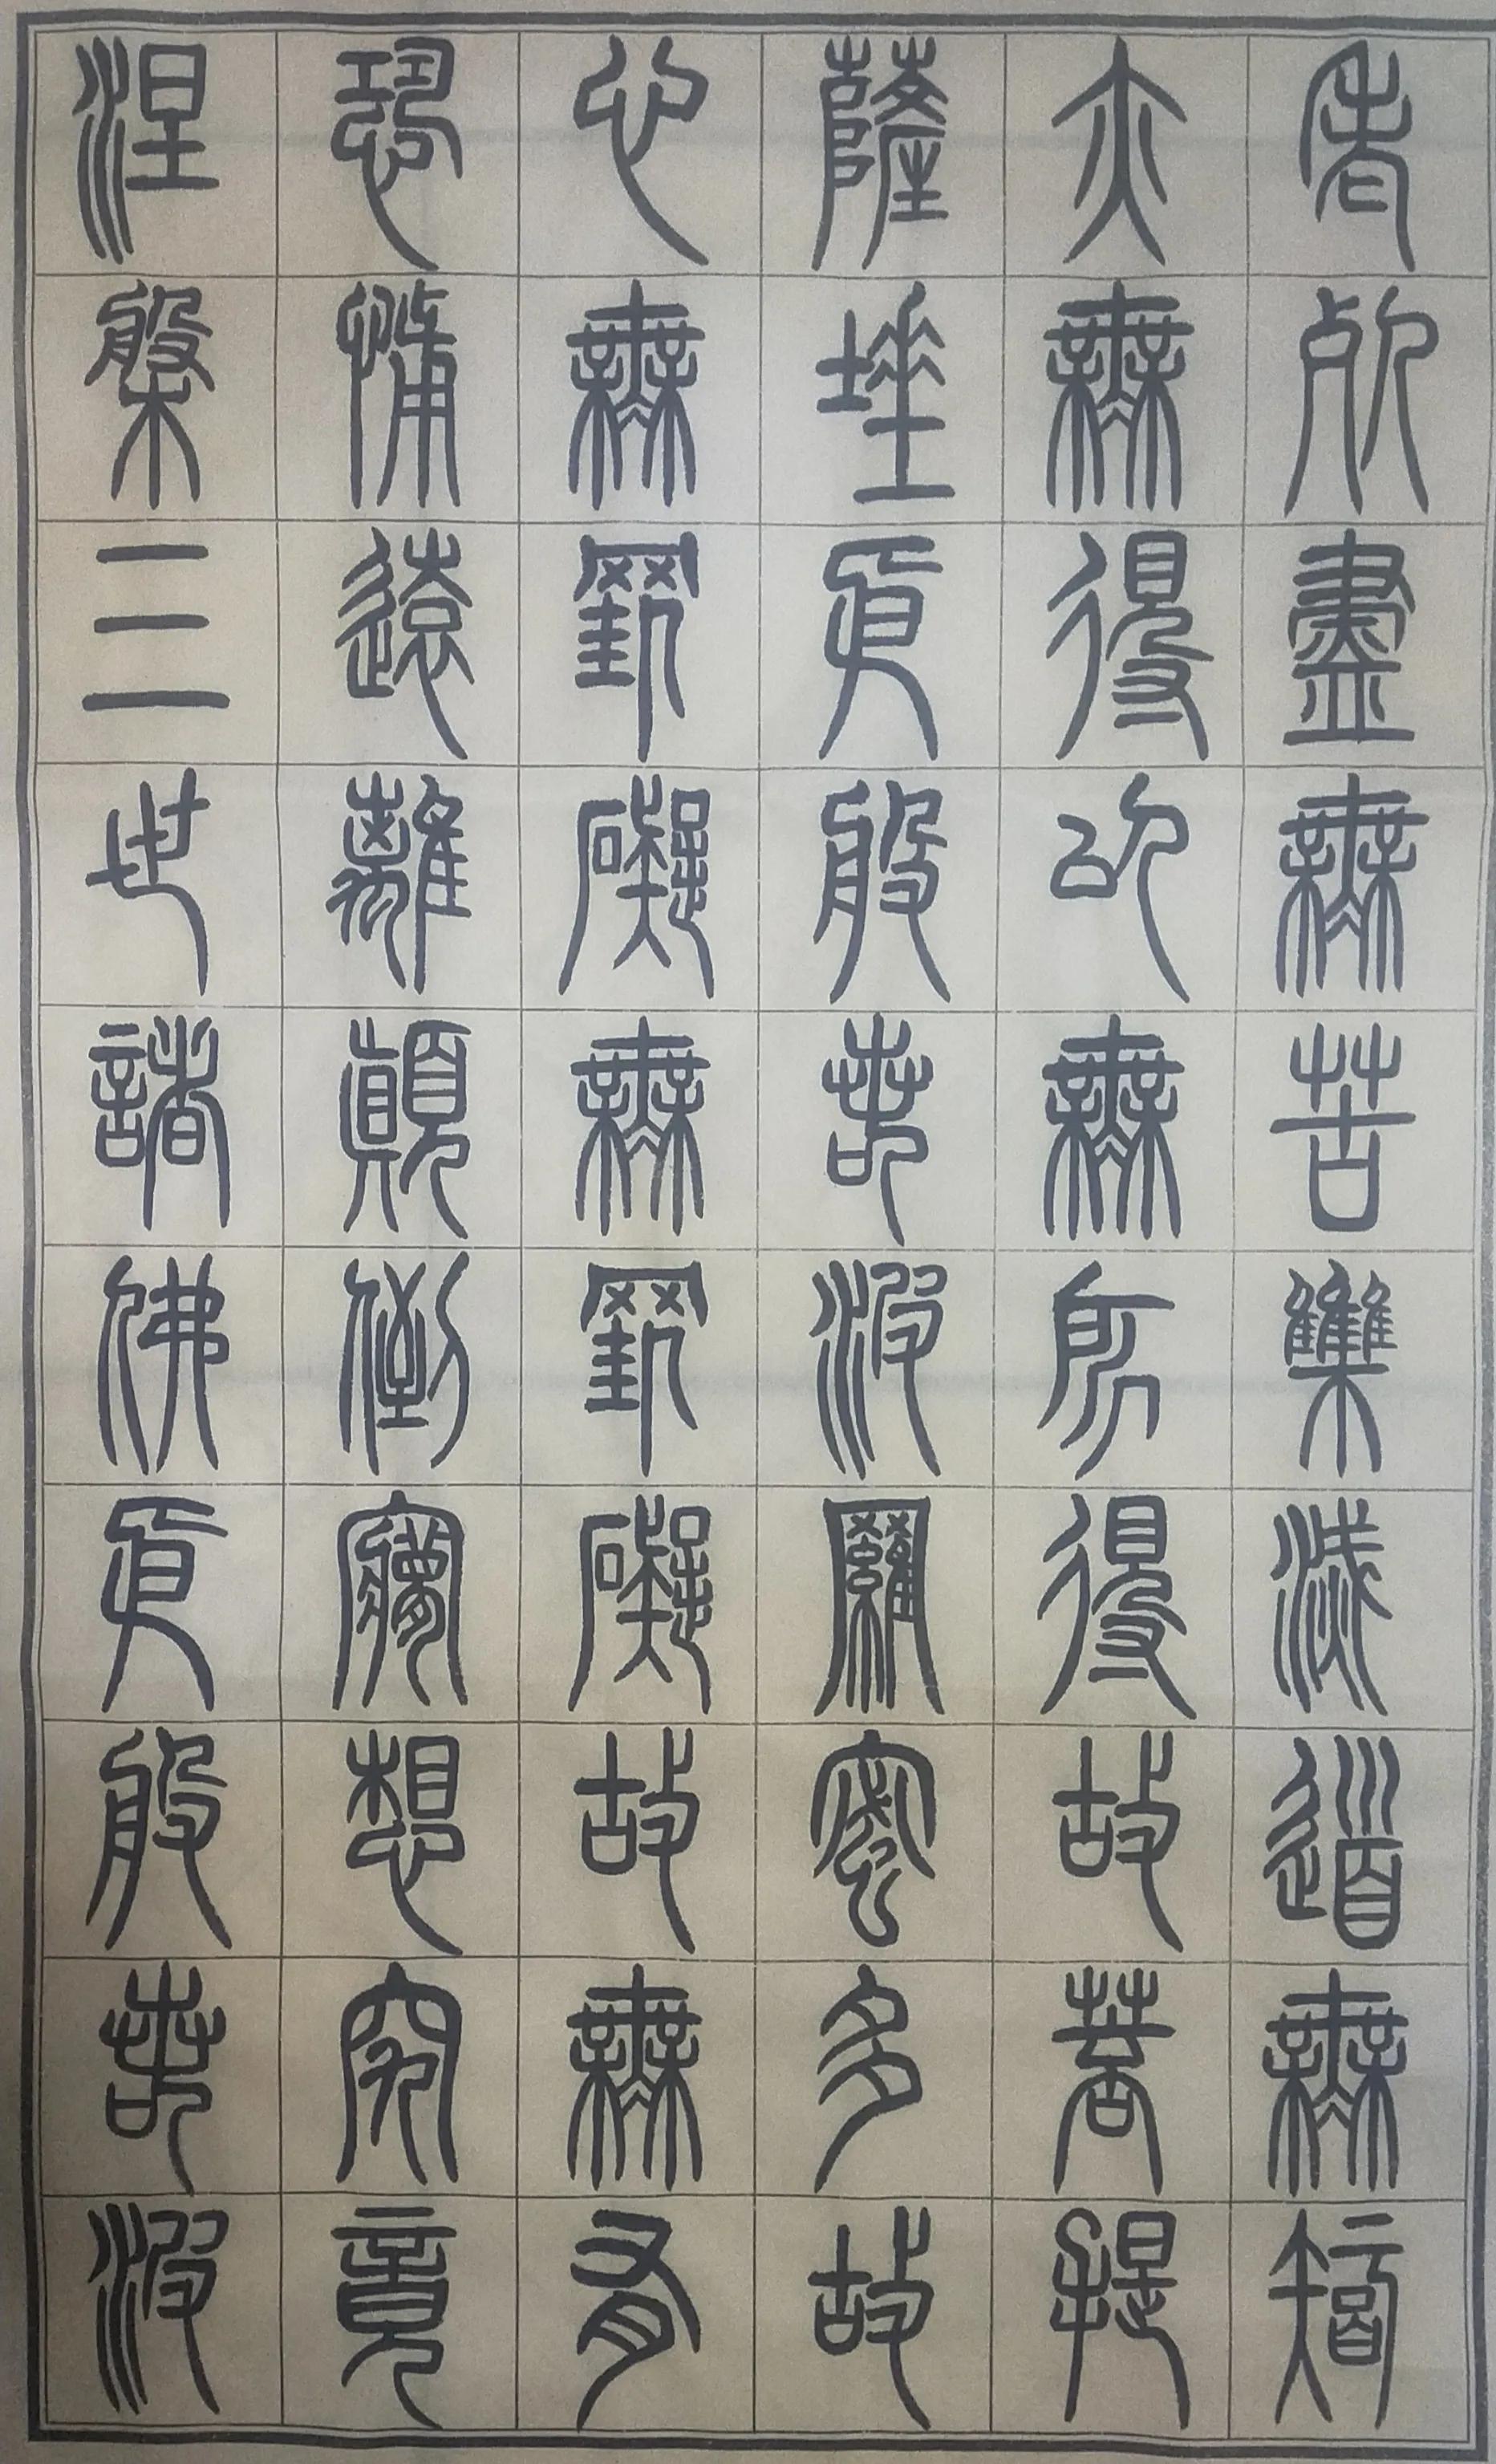 老死盡無苦集滅道無智
亦無得以無所得故菩提
薩埵依般若波羅蜜多故
心無罣礙無罣礙故無有
恐怖遠離顛倒夢想究竟
涅槃三世諸佛依般若波